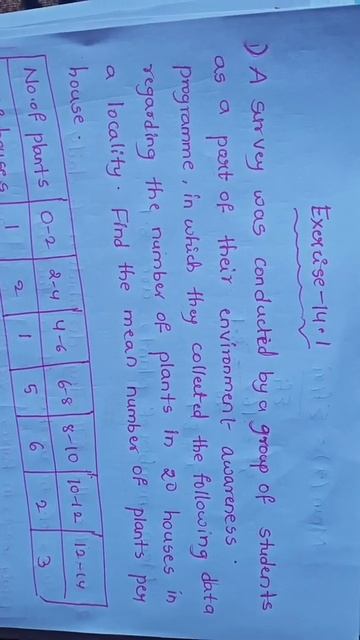 Exercise-14.1
1) A survey was conducted by a group of students
as a part of their environment awareness.
programme, in which they collected the following data
regarding the number of plants in 20 houses in
a locality. Find the mean number of plants per
house.
No.of plants 0-2 2-4 4-6 6-8 8-10 10-12 12-14
houses 1 2 1 5 6 2 3